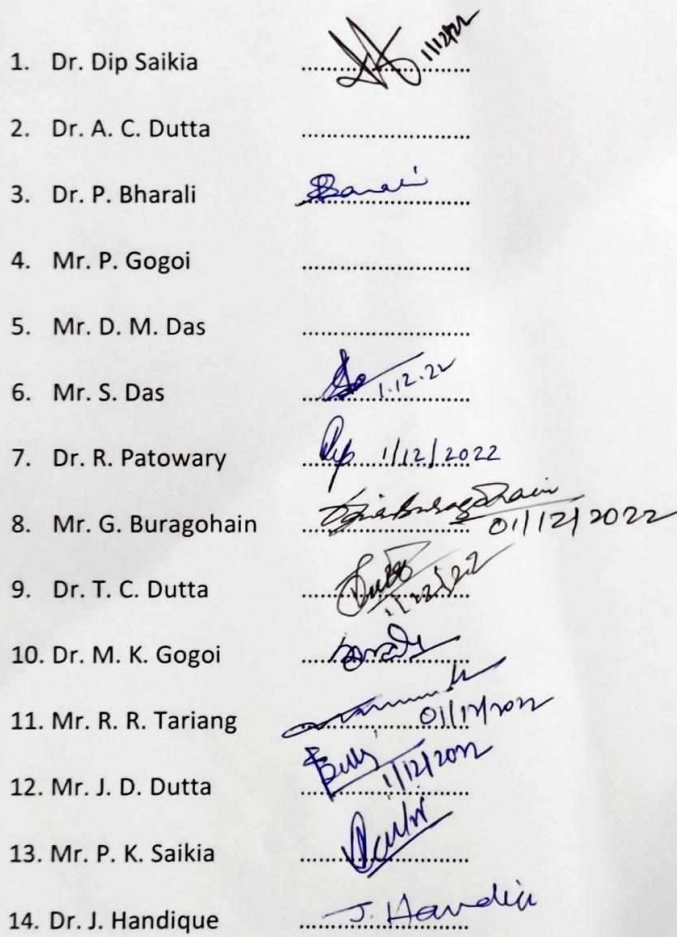 1. Dr. Dip Saikia ........................ 1/12/22
2. Dr. A. C. Dutta ........................
3. Dr. P. Bharali ........................
4. Mr. P. Gogoi ........................
5. Mr. D. M. Das ........................
6. Mr. S. Das ........................ 1.12.22
7. Dr. R. Patowary ........................ 1/12/2022
8. Mr. G. Buragohain ........................ 01/12/2022
9. Dr. T. C. Dutta ........................ 1/12/22
10. Dr. M. K. Gogoi ........................
11. Mr. R. R. Tariang ........................ 01/12/2022
12. Mr. J. D. Dutta ........................ 1/12/2022
13. Mr. P. K. Saikia ........................
14. Dr. J. Handique ........................ J.